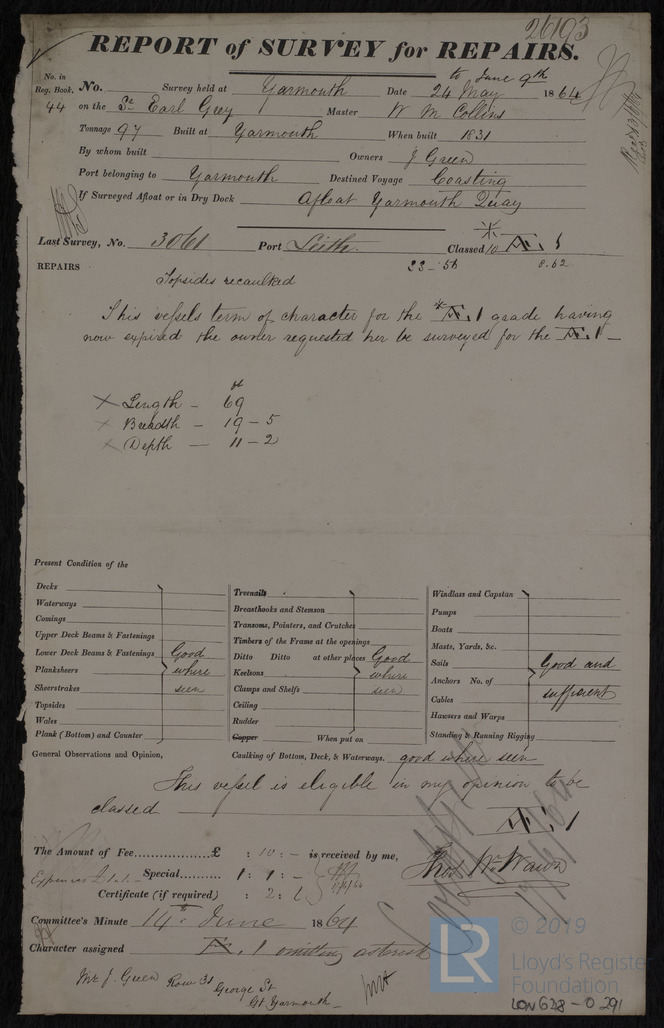 26193
REPORT of SURVEY for REPAIRS.
No. in
Reg. Book.
44
No. Survey held at Yarmouth Date 24 May to June 9th 1864
on the Sr. Earl Grey Master W M Collins
Tonnage 97 Built at Yarmouth When built 1831
By whom built Owners J Green
Port belonging to Yarmouth Destined Voyage Coasting
If Surveyed Afloat or in Dry Dock Afloat Yarmouth Quay
Last Survey, No. 3061 Port Leith. Classed 10 Æ. 1
23-56 8.62
REPAIRS
Topsides recaulked
This vessels term of character for the *Æ. 1 grade having
now expired the owner requested her be surveyed for the Æ. 1 —
ft
× Length - 69
× Breadth - 19 - 5
× Depth - 11 - 2
Present Condition of the
Decks
Waterways
Comings
Upper Deck Beams & Fastenings
Lower Deck Beams & Fastenings Good
Planksheers where
Sheerstrakes seen
Topsides
Wales
Plank (Bottom) and Counter
Treenails
Breasthooks and Stemson
Transoms, Pointers, and Crutches
Timbers of the Frame at the openings
Ditto Ditto at other places Good
Keelsons where
Clamps and Shelfs seen
Ceiling
Rudder
Copper When put on
Windlass and Capstan
Pumps
Boats
Masts, Yards, &c.
Sails Good and
Anchors No. of
Cables sufficient
Hawsers and Warps
Standing & Running Rigging
General Observations and Opinion, Caulking of Bottom, Deck, & Waterways. good where seen
This vessel is eligible in my opinion to be
classed Æ. 1
The Amount of Fee.................£ : 10 : - is received by me,
Expenses Special.......... 1 : 1 : -
Thos. Wm. Wawn
Certificate (if required) : 2 : 6
Committee's Minute 14th June 1864
Character assigned Æ. 1 omitting asterisk
Mr J. Green Row 31
George St
Gt. Yarmouth
LR
© 2019
Lloyd's Register
Foundation
LON628-0291